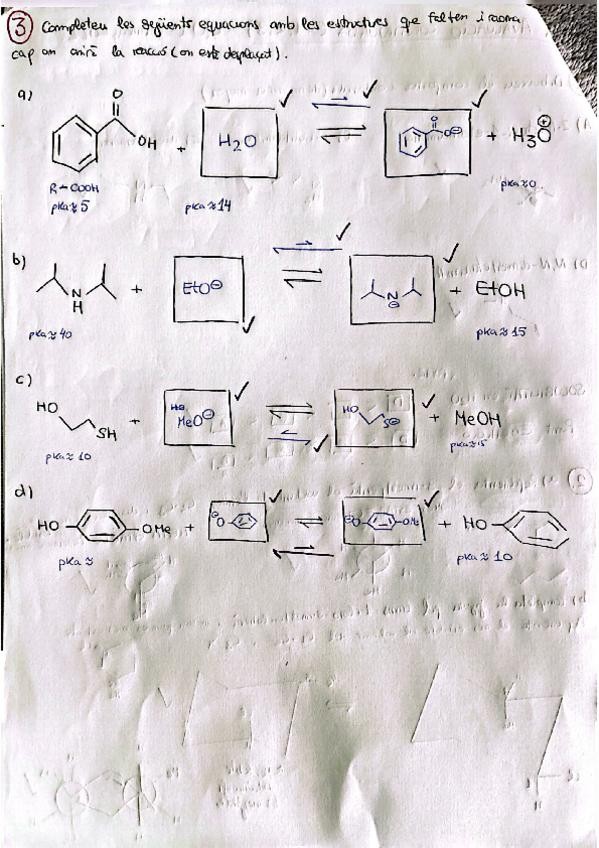 3 Completeu les següents equacions amb les estructures que falten i raona
cap on anirà la reacció (on està desplaçat).
a)
O
OH
+
H2O
O
O⊖
+ H3O⊕
R-COOH
pka≈5
pka≈14
pka≈0
b)
N
H
+
EtO⊖
N
⊖
+ EtOH
pka≈40
pka≈15
c)
HO
SH
+
MeO⊖
HO
S⊖
+ MeOH
pka≈10
pka≈15
d)
HO
OMe
+
⊖O
⊖O
OMe
+ HO
pka≈
pka≈10